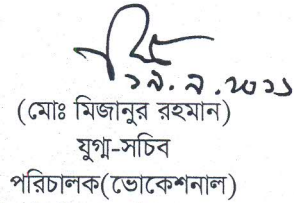 ১৯.৯.২০২১
(মোঃ মিজানুর রহমান)
যুগ্ম-সচিব
পরিচালক(ভোকেশনাল)